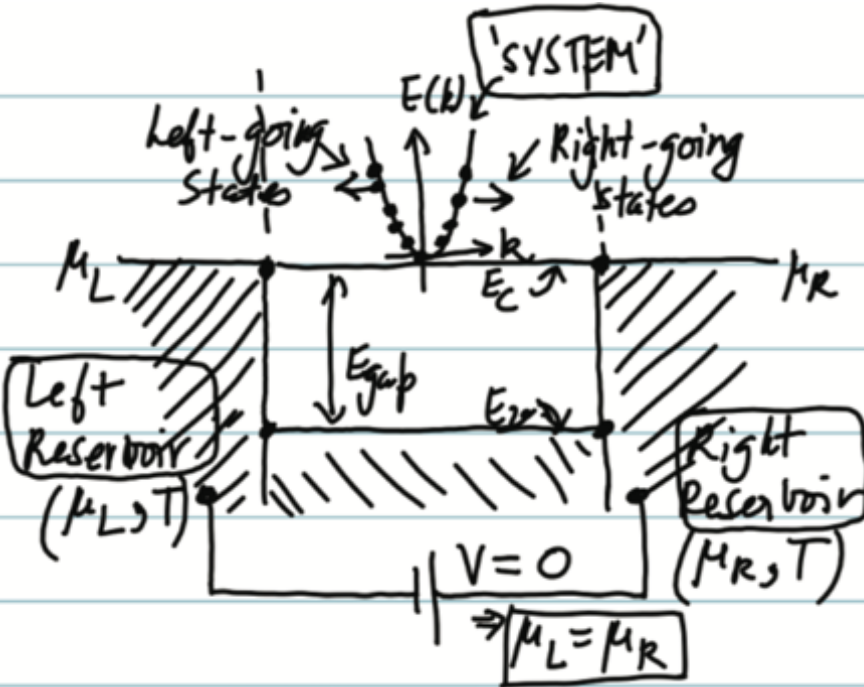 'SYSTEM'
E(k)
Left-going
states
Right-going
states
k
μL
μR
Ec
Egap
Ev
Left
Reservoir
(μL, T)
Right
Reservoir
(μR, T)
V = 0
⇒ μL = μR